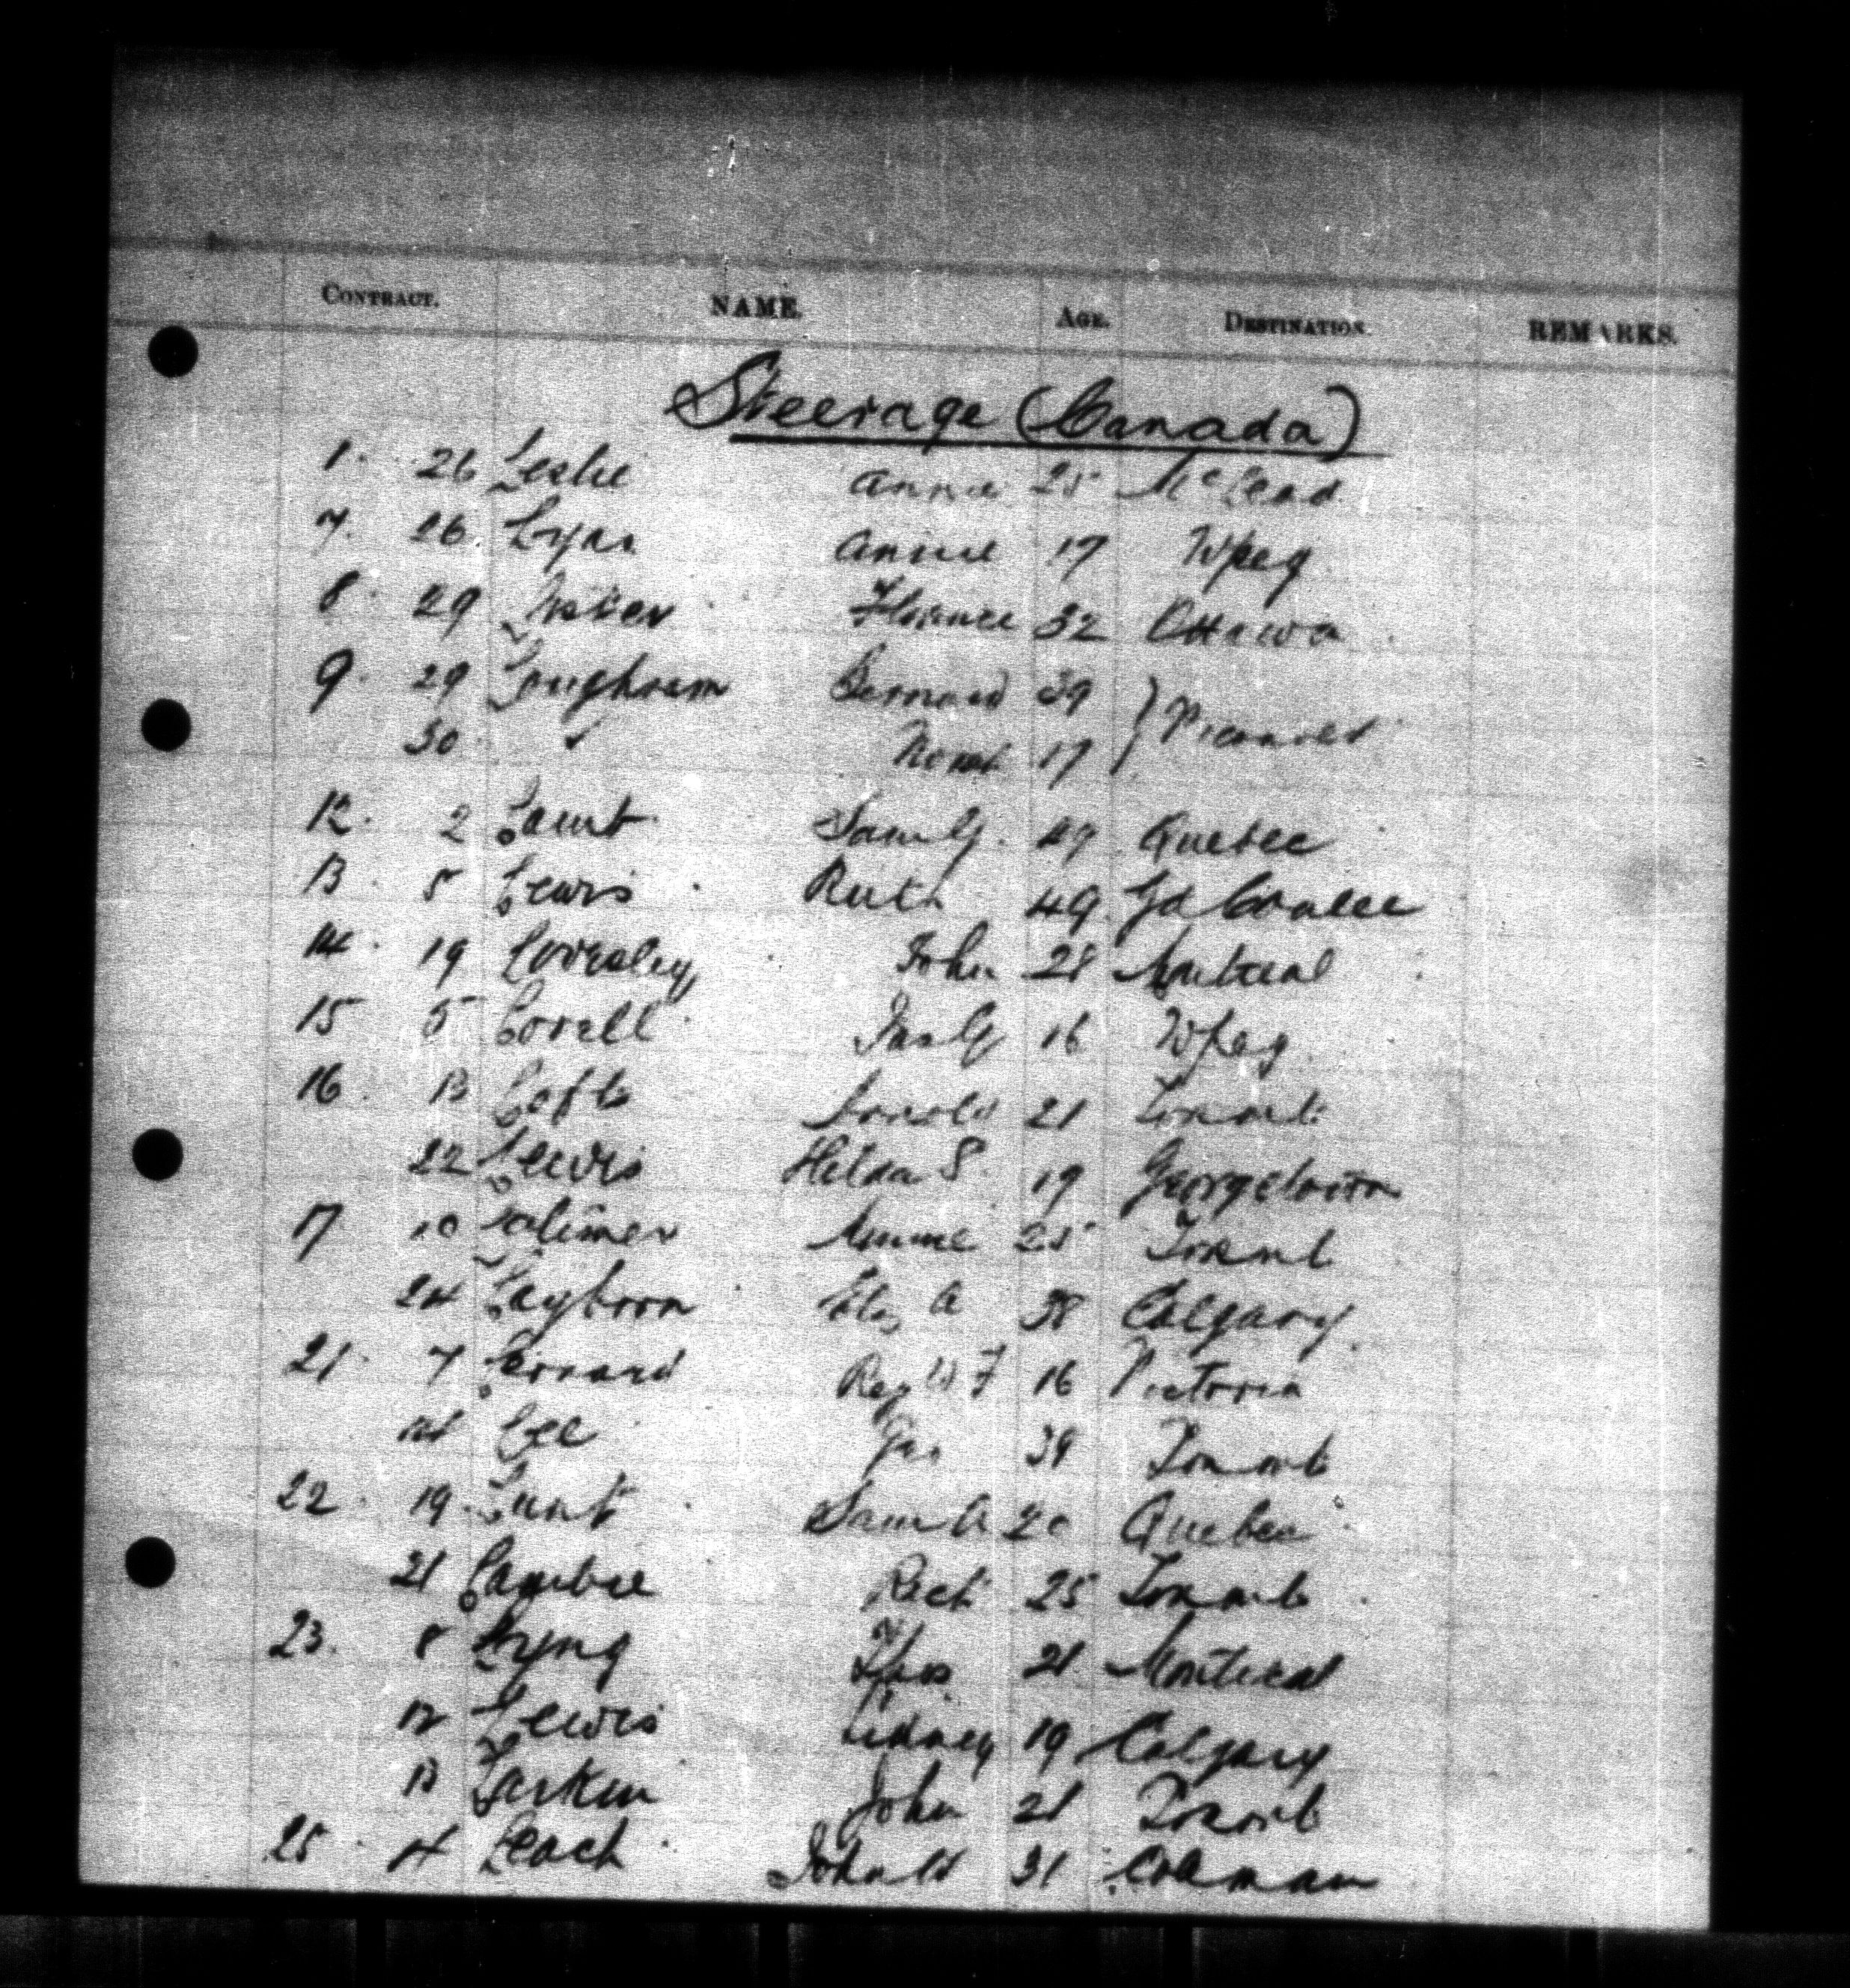 CONTRACT. NAME. AGE. DESTINATION. REMARKS.
Steerage (Canada)
1. 26 Leslie Annie 25 McLeod
7. 26. Lyas Annie 17 Wpeg.
8. 29 Florence 32 Ottawa
9. 29 Bernard 39
30 17
12. 2 Saml G. 47 Quebec
13. 5 Lewis Ruth 49
14. 19 Loversley John 28 Montreal
15 5 Lovell Jas G 16 Wpeg.
16. 13 Lofts Arnold 21 Toronto
22 Lewis Hilda S. 19 Georgetown
17 10 Latimer Minnie 25 Toronto
24 Layborn Eliz A 38 Calgary
21. 7 Regd F 16 Victoria
14 Lee 39 Toronto
22. 19. Lunt Saml A 20 Quebec
21 Rich 25 Toronto
23. 8 Lyng Thos 21 Montreal
12 Lewis Sidney 19 Calgary
13 Larkin John 21 Toronto
25. 4 Leach John H 31 Coleman